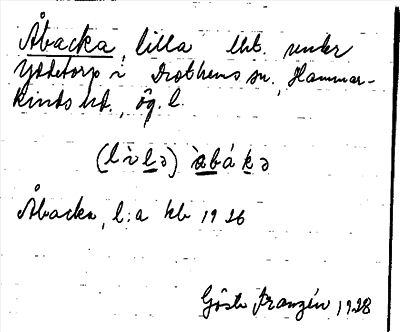 Åbacka, lilla lht. under
Yttetorp i Drothems sn, Hammar-
kinds hd. Ög. l.
(lìlə) àbákə
Åbacka, l:a kb 1926
Gösta Franzén 1928